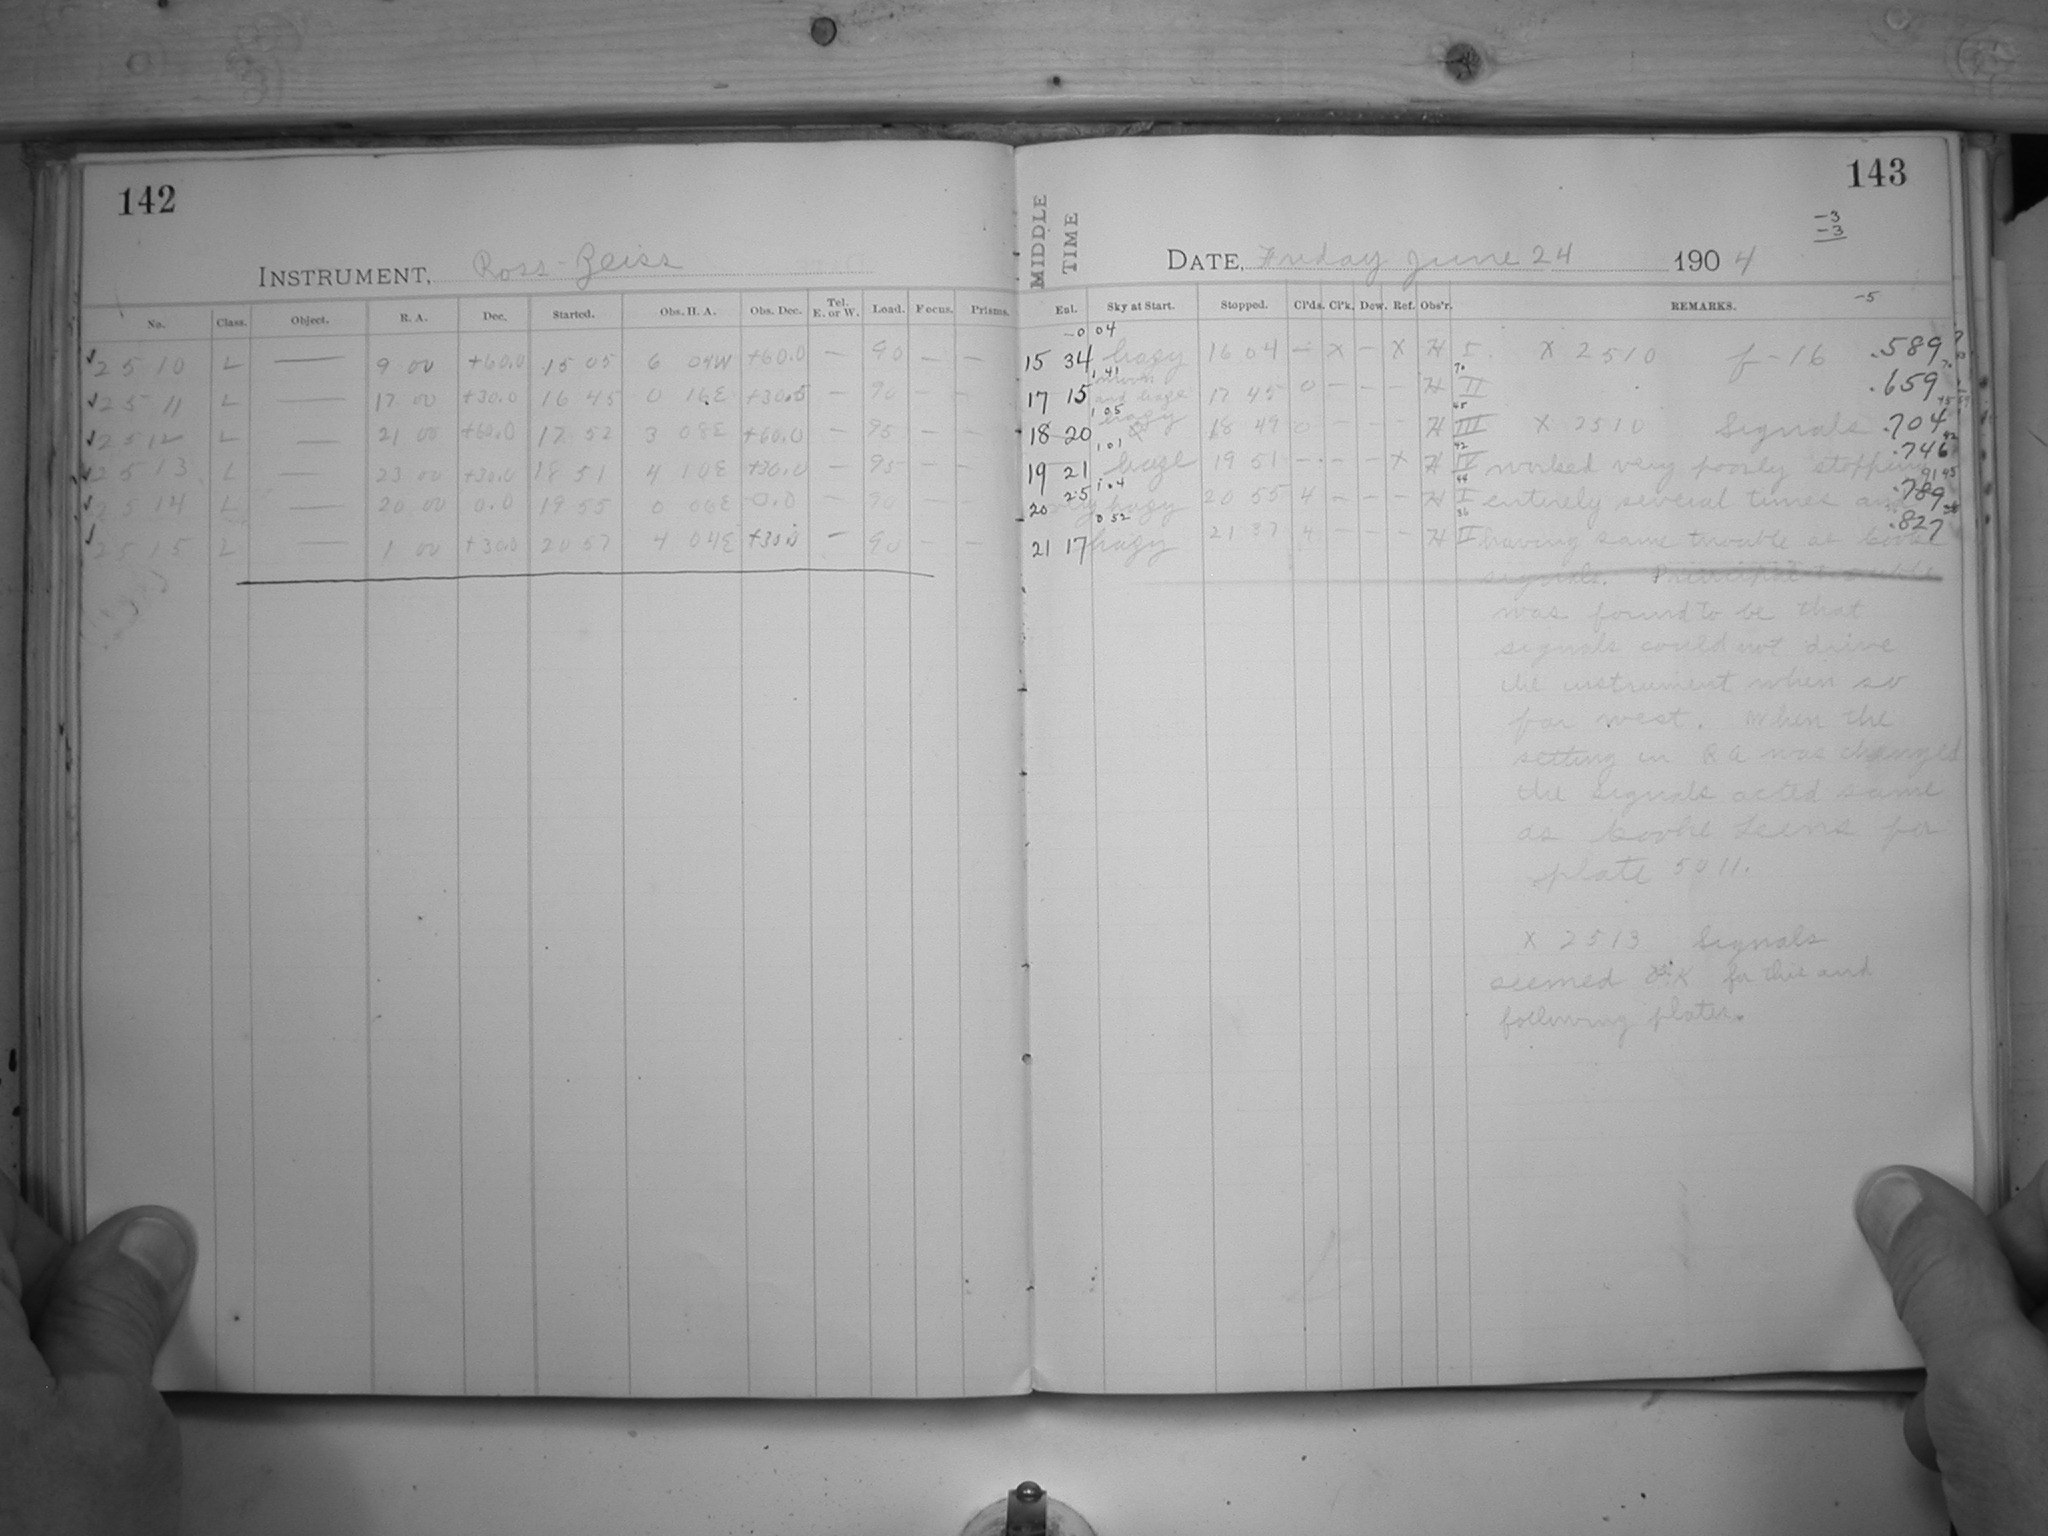 142
INSTRUMENT, Ross-Zeiss
No. Class. Object. R. A. Dec. Started. Obs. H. A. Obs. Dec. Tel. E. or W. Load. Focus. Prisms.
2510 L — 9 00 +60.0 15 05 6 04W +60.0 — 90 — —
2511 L — 17 00 +30.0 16 45 0 16E +30.5 — 90 — —
2512 L — 21 00 +60.0 17 52 3 08E +60.0 — 95 — —
2513 L — 23 00 +30.0 18 51 4 10E +30.0 — 95 — —
2514 L — 20 00 0.0 19 55 0 06E 0.0 — 90 — —
2515 L — 1 00 +30.0 20 57 4 04E +30.0 — 90 — —
143
MIDDLE TIME
-3
-3
DATE, Friday June 24 1904
-5
Enl. Sky at Start. Stopped. Cl'ds. Cl'k. Dew. Ref. Obs'r. REMARKS.
15 34 hazy 16 04 — X — X H I. X 2510 f-16 .589
17 15 moon and haze 17 45 0 — — — H II .659
18 20 hazy 18 49 0 — — — H III X 2510 Signals .704
19 21 haze 19 51 — — — X H IV worked very poorly stopping .746
20 25 very hazy 20 55 4 — — — H I entirely several times .789
21 17 hazy 21 37 4 — — — H II having same trouble as Cooke .827
signals. Principal trouble
was found to be that
signals could not drive
the instrument when so
far west. When the
setting in R A was changed
the signals acted same
as Cooke Leens for
plate 5011.
X 2513 Signals
seemed O.K for this and
following plates.